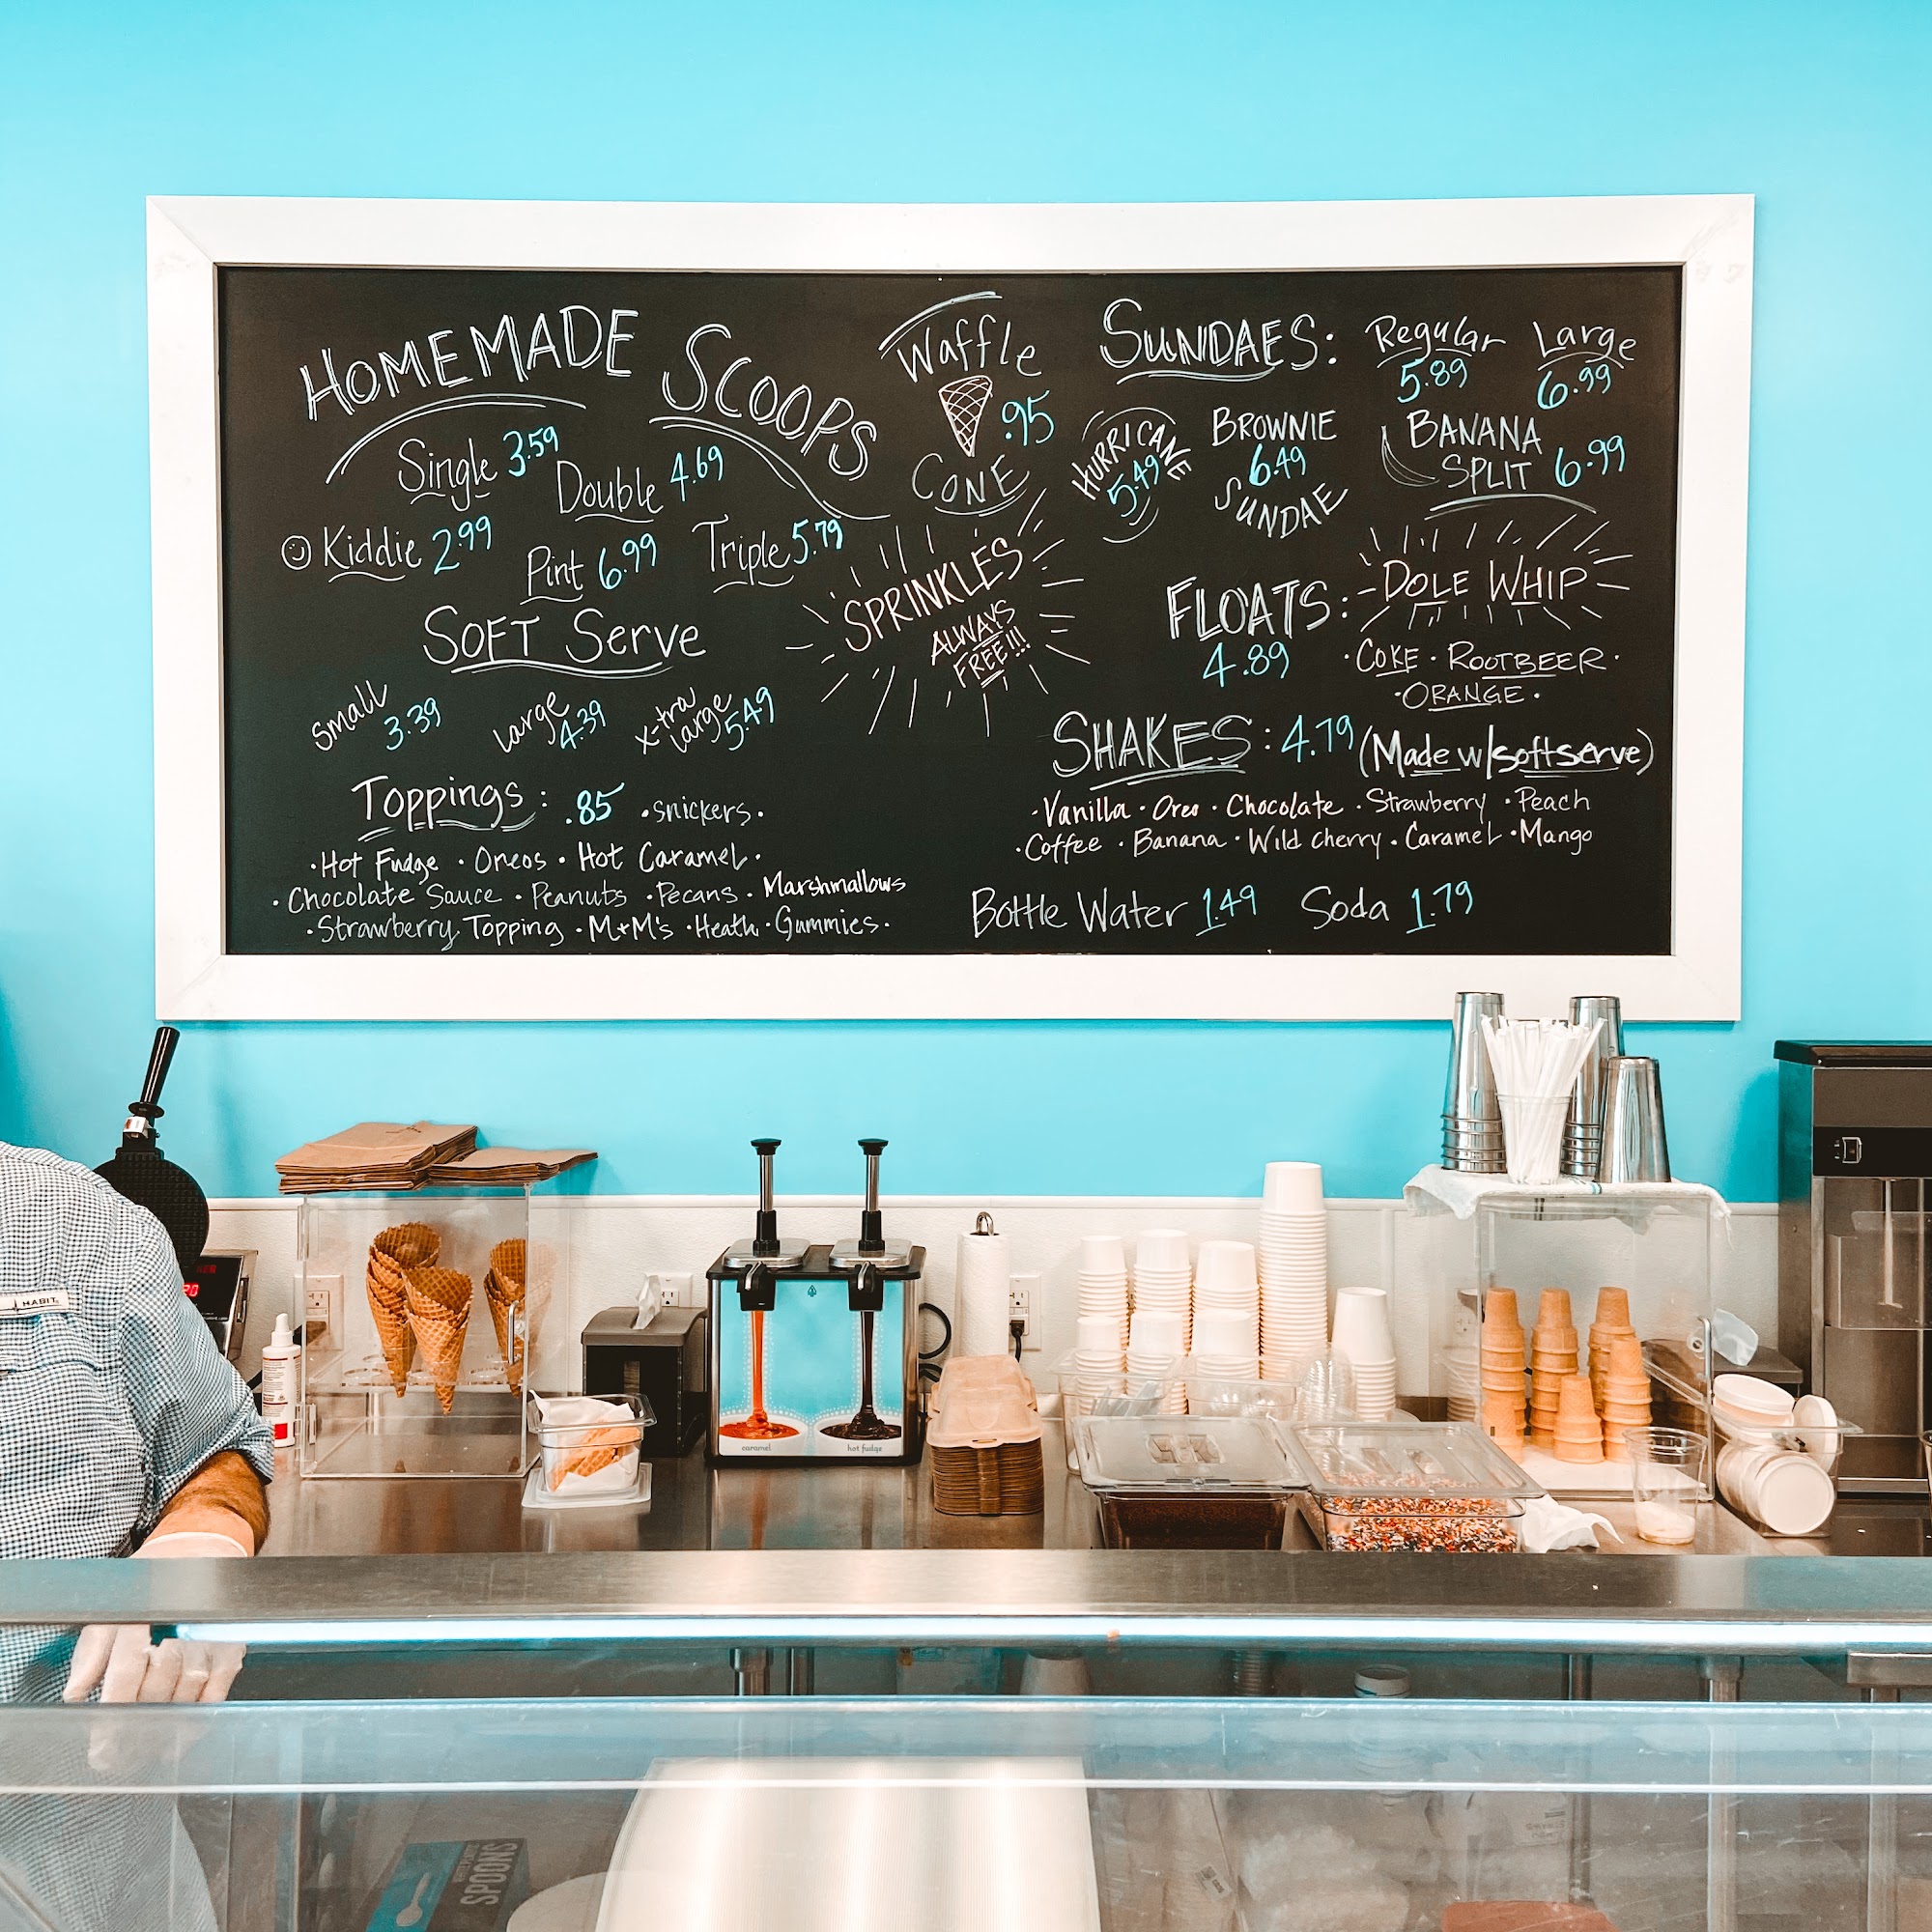 HOMEMADE SCOOPS
Single 3.59
Double 4.69
Kiddie 2.99
Pint 6.99
Triple 5.79
SOFT Serve
small 3.39
Large 4.39
x-tra Large 5.49
Toppings: .85 · Snickers ·
· Hot Fudge · Oreos · Hot Caramel ·
· Chocolate Sauce · Peanuts · Pecans · Marshmallows
· Strawberry Topping · M+M's · Heath · Gummies ·
Waffle
.95
CONE
SPRINKLES
ALWAYS
FREE!!!
SUNDAES: Regular 5.89 Large 6.99
HURRICANE
5.49
BROWNIE
6.49
SUNDAE
BANANA
SPLIT 6.99
FLOATS: DOLE WHIP
4.89
· COKE · ROOTBEER ·
· ORANGE ·
SHAKES: 4.79 (Made w/softserve)
· Vanilla · Oreo · Chocolate · Strawberry · Peach
· Coffee · Banana · Wild cherry · Caramel · Mango
Bottle Water 1.49 Soda 1.79
HABIT
caramel
hot fudge
SPOONS